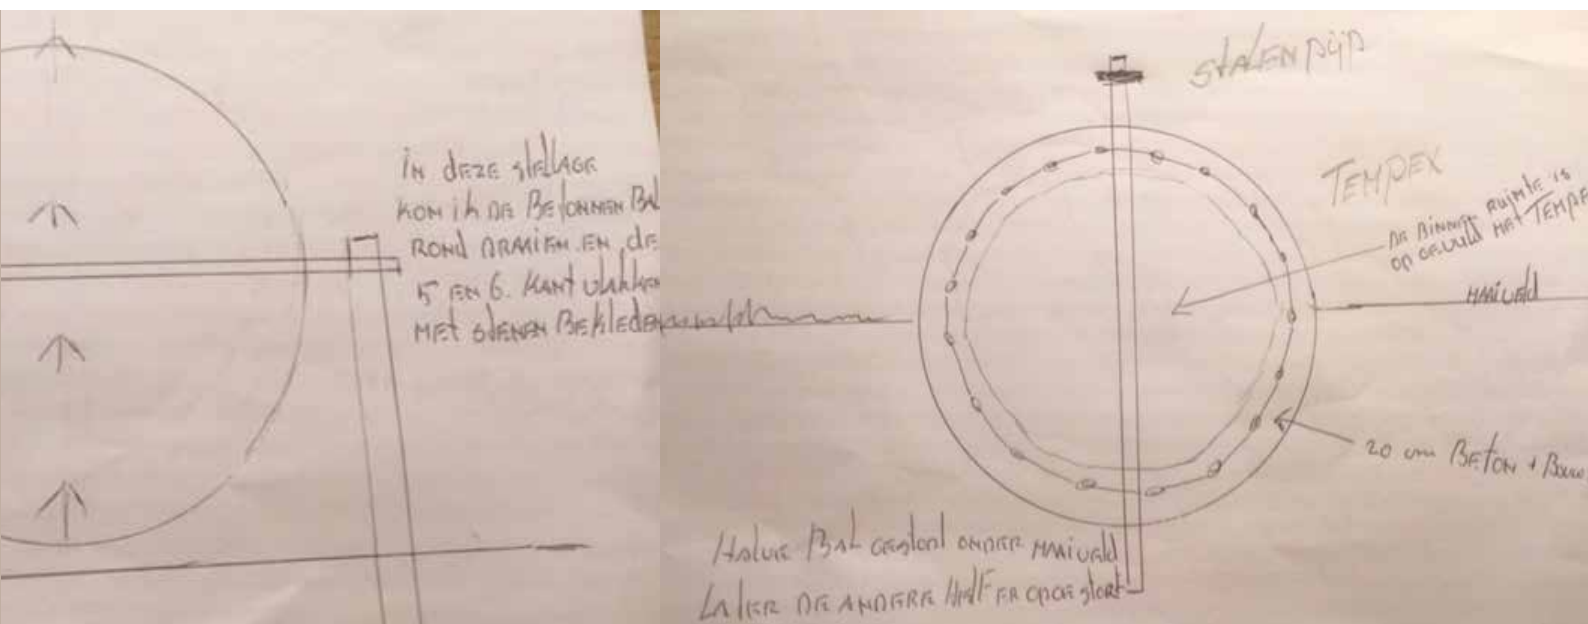 in deze stellage
kom ik de Betonnen Bal
rond draaien en de
5 en 6. kant vlakken
met stenen Bekleden
stalen pijp
Tempex
de binnen ruimte is
op gevuld met Tempe
maaiveld
20 cm Beton + Bouw
Halve Bal gestort onder maaiveld
Later de andere Helft er op gestort